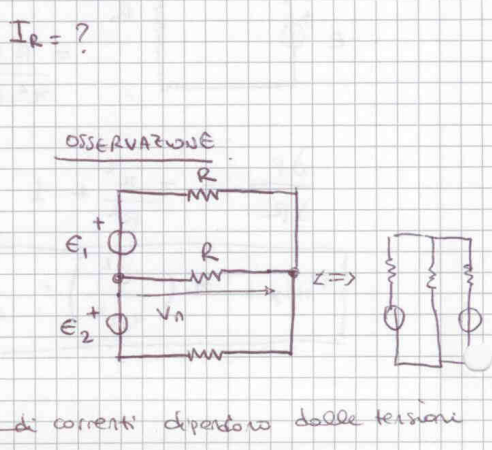 I_R = ?
OSSERVAZIONE
R
+
ε₁
R
<=>
+
ε₂
V_n
di correnti dipendono dalle tensioni